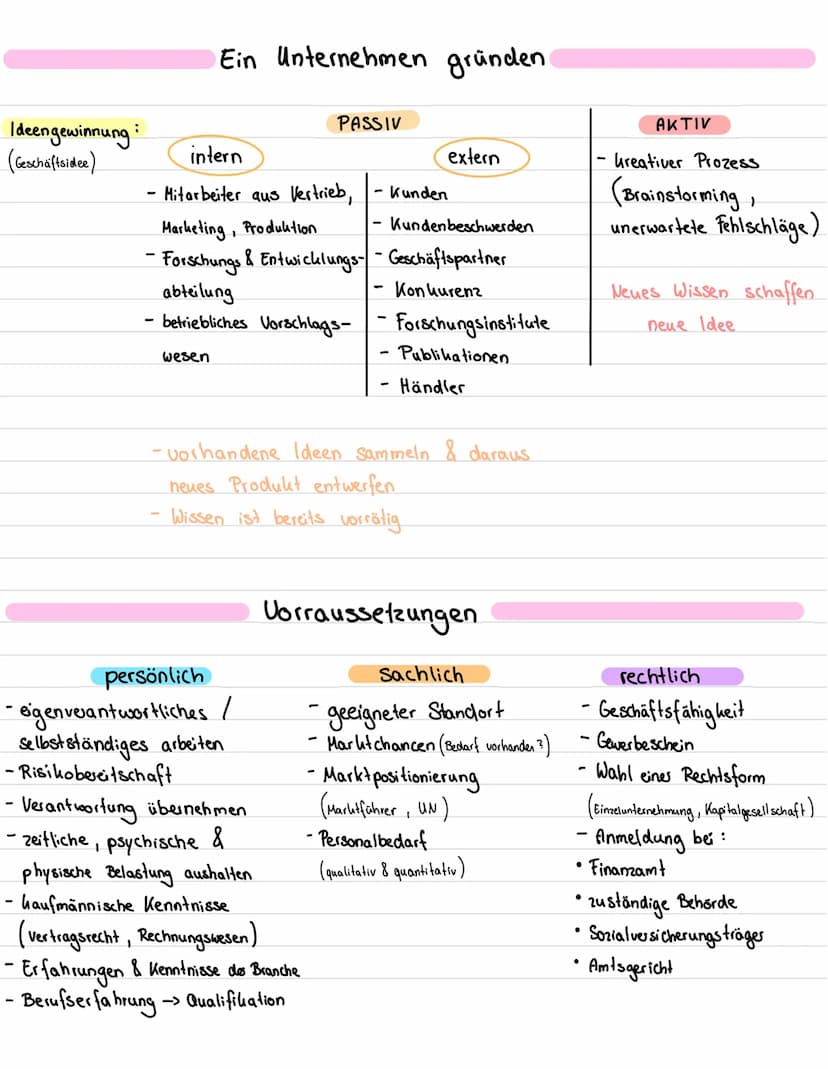 Ein Unternehmen gründen
Ideengewinnung:
(Geschäftsidee)
PASSIV
intern
- Mitarbeiter aus Vertrieb,
Marketing, Produktion
- Forschungs & Entwicklungs-
abteilung
- betriebliches Vorschlags-
wesen
extern
- Kunden
- Kundenbeschwerden
- Geschäftspartner
- Konkurenz
- Forschungsinstitute
- Publikationen
- Händler
- vorhandene Ideen sammeln & daraus
neues Produkt entwerfen
- Wissen ist bereits vorrätig
AKTIV
- kreativer Prozess
(Brainstorming,
unerwartete Fehlschläge)
Neues Wissen schaffen
neue Idee
Vorraussetzungen
persönlich
- eigenverantwortliches /
selbstständiges arbeiten
- Risikobereitschaft
- Verantwortung übernehmen
- zeitliche, psychische &
physische Belastung aushalten
- kaufmännische Kenntnisse
(Vertragsrecht, Rechnungswesen)
- Erfahrungen & Kenntnisse der Branche
- Berufserfahrung → Qualifikation
sachlich
- geeigneter Standort
- Marktchancen (Bedarf vorhanden?)
- Marktpositionierung
(Marktführer, UN)
- Personalbedarf
(qualitativ & quantitativ)
rechtlich
- Geschäftsfähigkeit
- Gewerbeschein
- Wahl eines Rechtsform
(Einzelunternehmung, Kapitalgesellschaft)
- Anmeldung bei:
• Finanzamt
• zuständige Behörde
• Sozialversicherungsträger
• Amtsgericht